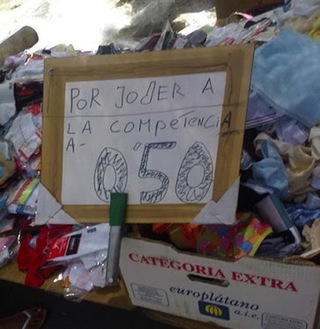 POR JODER A
LA COMPETENCIA
A- 0'50
CATEGORIA EXTRA
europlátano
a.i.e.